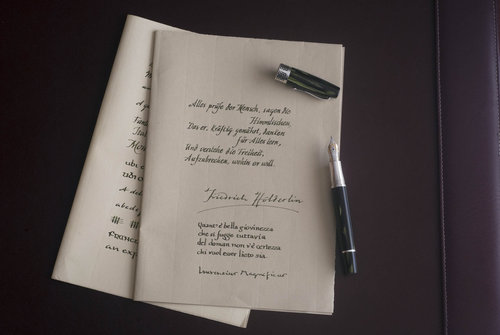 Alles prüfe der Mensch, sagen die
Himmlischen,
Das er, kräftig genährt, danken
für Alles lern,
Und verstehe die Freiheit,
Aufzubrechen, wohin er will.
Friedrich Hölderlin
Quant'è bella giovinezza
che si fugge tuttavia
del doman non v'è certezza
chi vuol esser lieto sia.
Laurentius Magnificus